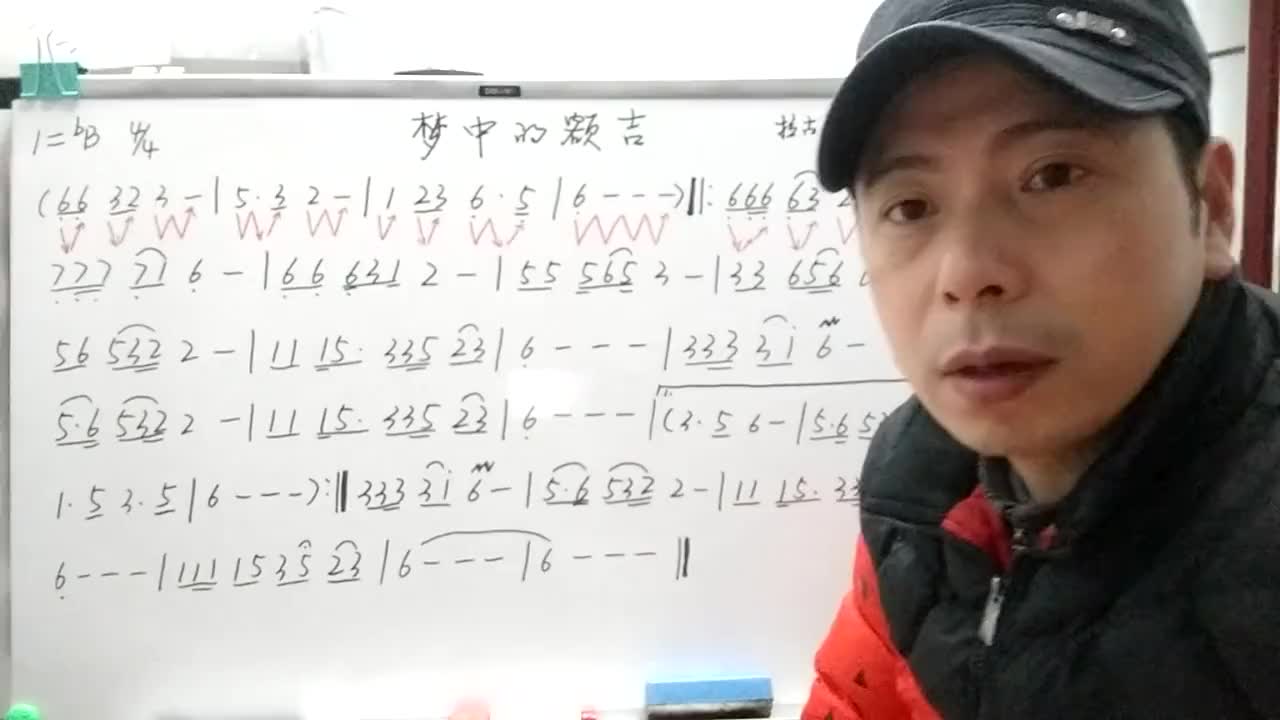 1=ᵇB 4/4 梦中的额吉
(66 323 - | 5·3 2 - | 1 23 6·5 | 6 - - -)‖: 666 63 2
777 71 6 - | 66 631 2 - | 55 565 3 - | 33 656
56 532 2 - | 11 15· 335 23 | 6 - - - | 333 31 6 -
5·6 532 2 - | 11 15· 335 23 | 6 - - - | (3·5 6 - | 5·6 5
1·5 3·5 | 6 - - -):‖ 333 31 6 - | 5·6 532 2 - | 11 15· 33
6 - - - | 111 15 35 23 | 6 - - - | 6 - - - ‖